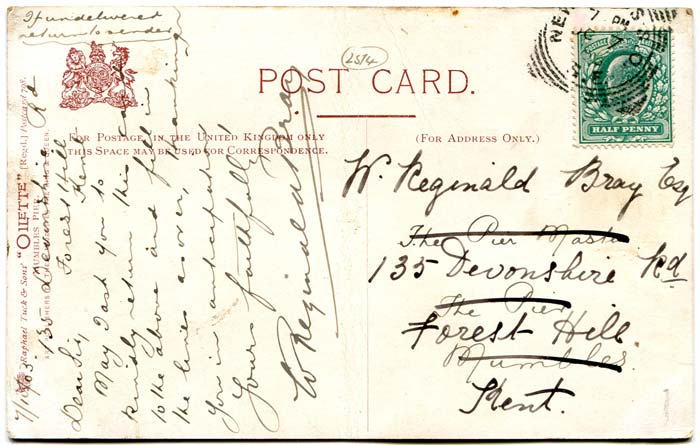 If undelivered
return to sender
2514
POST CARD.
FOR POSTAGE IN THE UNITED KINGDOM ONLY
THIS SPACE MAY BE USED FOR CORRESPONDENCE
(FOR ADDRESS ONLY.)
POSTAGE
HALF PENNY
Raphael Tuck & Sons' "OILETTE" [Regd.] Postcard
MUMBLES PIER
7/1903. 135 Devonshire Rd
Forest Hill
Kent
Dear Sir,
May I ask you to
kindly return this card
to the above and fill in
the lines as over, thanking
you in anticipation
Yours faithfully
W Reginald Bray
W. Reginald Bray Esq
The Pier Master
135 Devonshire Rd
The Pier
Forest Hill
Mumbles.
Kent.